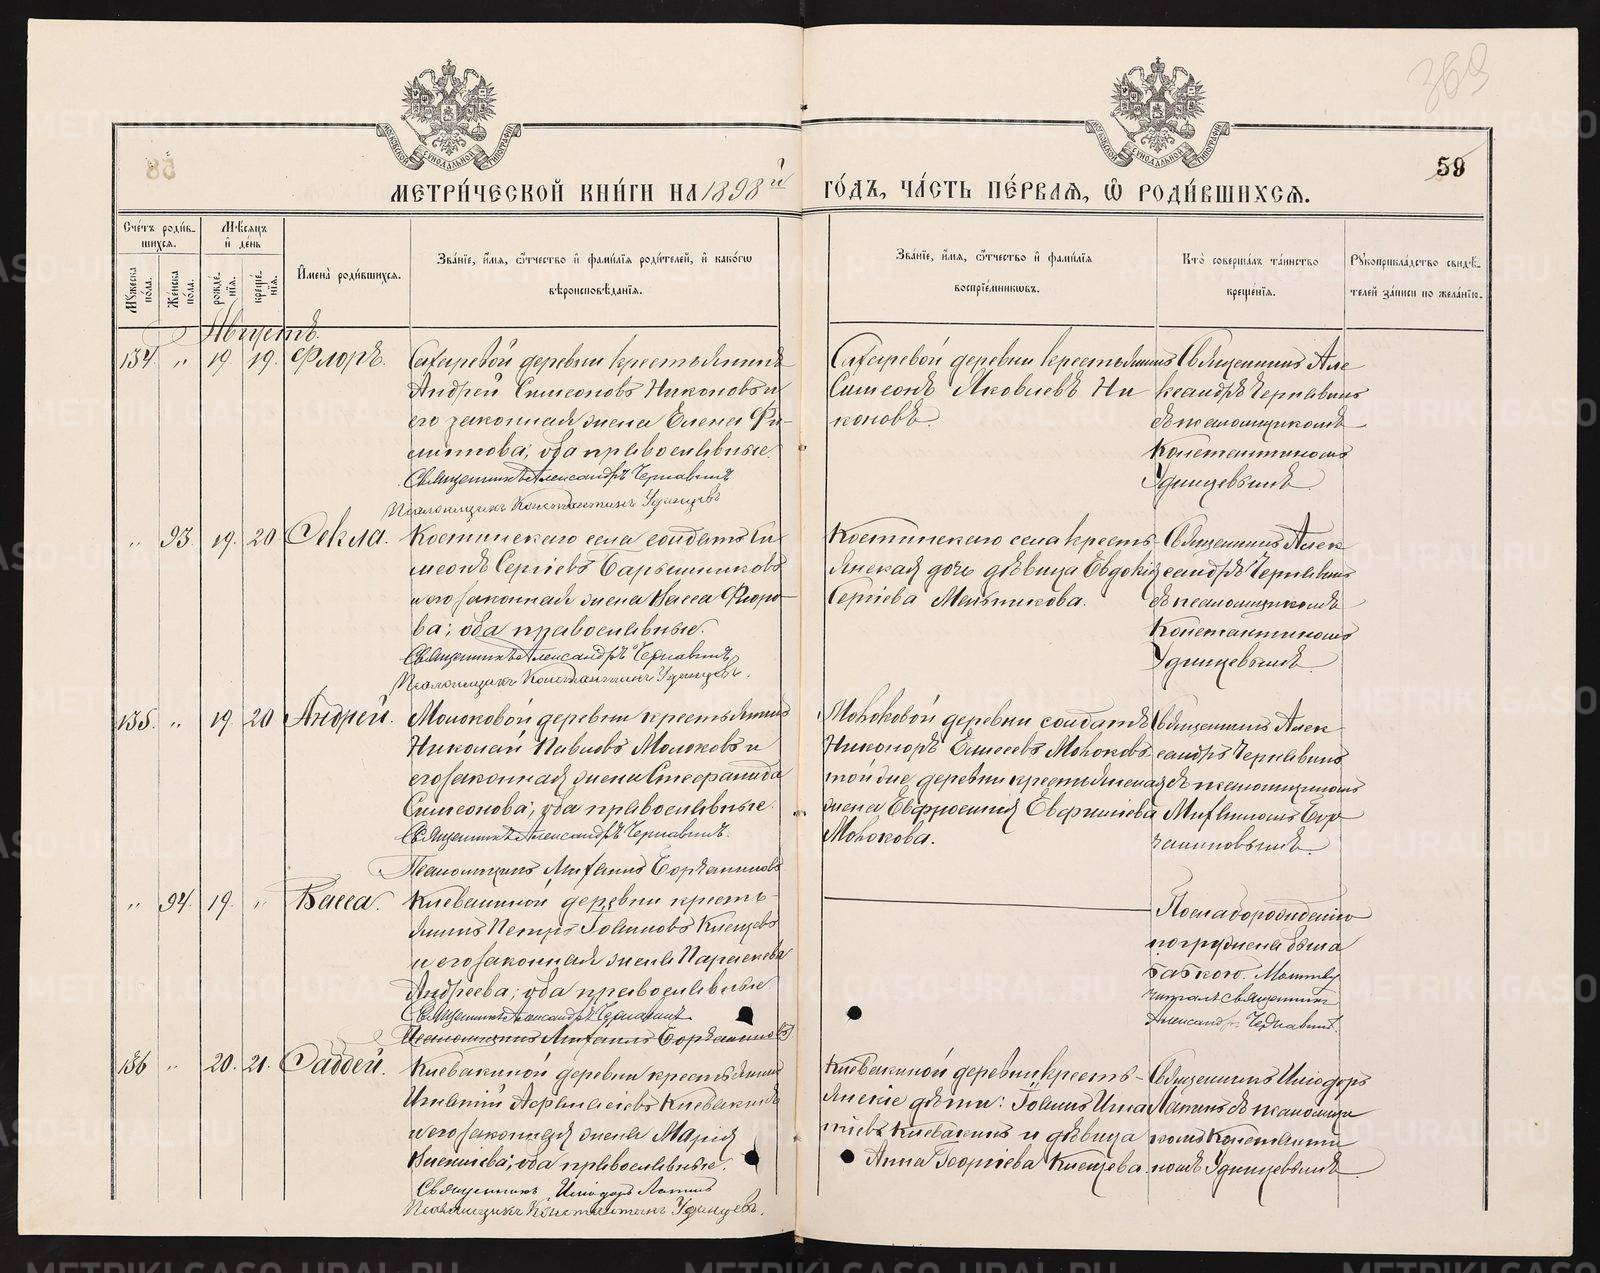 369
59
МЕТРИ́ЧЕСКОЙ КНИ́ГИ НА 1898й ГО́ДЪ, ЧА́СТЬ ПЕ́РВАЯ, Ѽ РОДИ́ВШИХСЯ.
Сче́тъ роди́в-
шихся.
Мꙋ́жеска по́ла.
Же́нска по́ла.
Мѣ́сяцъ и́ де́нь
рожде́нїя.
креще́нїя.
И҆мена̀ роди́вшихся.
Зва́нїе, и҆́мя, ѻ҆́тчество и҆ фами́лїя роди́телей, и҆ како́гѡ
вѣроисповѣ́данїя.
Зва́нїе, и҆́мя, ѻ҆́тчество и҆ фами́лїя
воспрїе́мникѡвъ.
Кто̀ соверша́лъ та́инство
креще́нїя.
Рꙋкоприкла́дство свидѣ́-
телей за́писи по жела́нїю.
Августъ.
134. „ 19 19. Флоръ.
деревни крестьянинъ
Андрей Симеоновъ Никоновъ и
его законная жена Елена Фи-
липпова; оба православные.
Священникъ Александръ Чернавинъ
Псаломщикъ Константинъ Удинцевъ
деревни крестьянинъ
Симеонъ Яковлевъ Ни
коновъ.
Священникъ Але
ксандръ Чернавинъ
съ псаломщикомъ
Константиномъ
Удинцевымъ.
„ 93. 19. 20 Ѳекла.
Костинскаго села солдатъ Си
меонъ Сергіевъ Барышниковъ
и его законная жена Васса Флоро
ва; оба православные.
Священникъ Александръ Чернавинъ
Псаломщикъ Константинъ Удинцевъ.
Костинскаго села кресть-
янская дочь дѣвица Евдокія
Сергіева Мельникова.
Священникъ Алек
сандръ Чернавинъ
съ псаломщикомъ
Константиномъ
Удинцевымъ
135. „ 19 20 Андрей.
Молоковой деревни крестьянинъ
Николай Павловъ Молоковъ и
его законная жена Стефанида
Симеонова; оба православные.
Священникъ Александръ Чернавинъ.
Псаломщикъ Михаилъ Борчаниновъ
Молоковой деревни солдатъ
Никоноръ Елисеевъ Молоковъ
той же деревни крестьянская
жена Евфросинія Евфимиева
Молокова.
Священникъ Алек
сандръ Чернавинъ
съ псаломщикомъ
Михаиломъ Бор
чаниновымъ.
„ 94. 19. „ Васса.
Клевакиной деревни кресть-
янинъ Петръ Іоанновъ Клещевъ
и его законная жена Параскева
Андреева; оба православные.
Священникъ Александръ Чернавинъ
Псаломщикъ Михаилъ Борчаниновъ
По слаборожденію
погружена была
бабкою. Молитву
читалъ священникъ
Александръ Чернавинъ.
136 „ 20. 21. Ѳаддей.
Клевакиной деревни крестьянинъ
Игнатій Афанасіевъ Клевакинъ
и его законная жена Марія
оба православные.
Священникъ Иліодоръ Лапинъ
Псаломщикъ Константинъ Удинцевъ.
Клевакиной деревни кресть-
янскіе дѣти: Іоаннъ Игна
тіевъ Клевакинъ и дѣвица
Анна Георгіева Клещева.
Священникъ Иліодоръ
Лапинъ съ псаломщи
комъ Константи
номъ Удинцевымъ